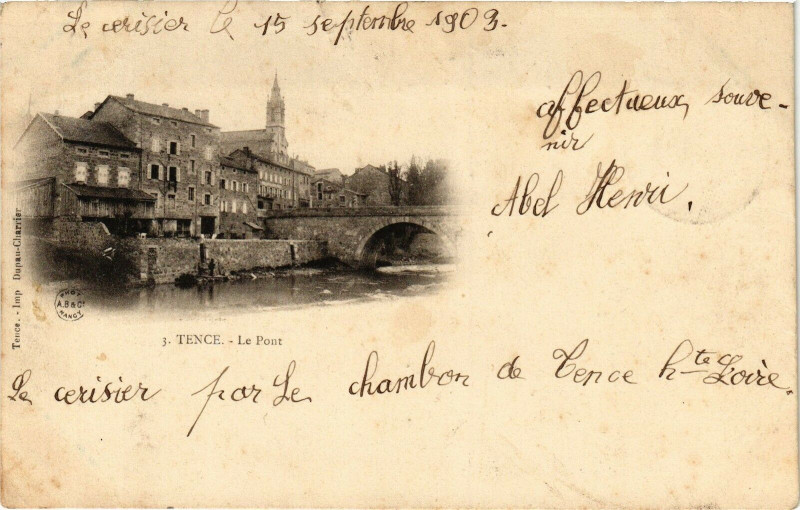 Le cerisier le 15 septembre 1903.
affectueux souve-
nir
Abel Henri.
Tence. - Imp Dupau-Charrier
PHOT
A.B & Cie
NANCY
3. TENCE. - Le Pont
Le cerisier par Le chambon de Tence hte Loire.